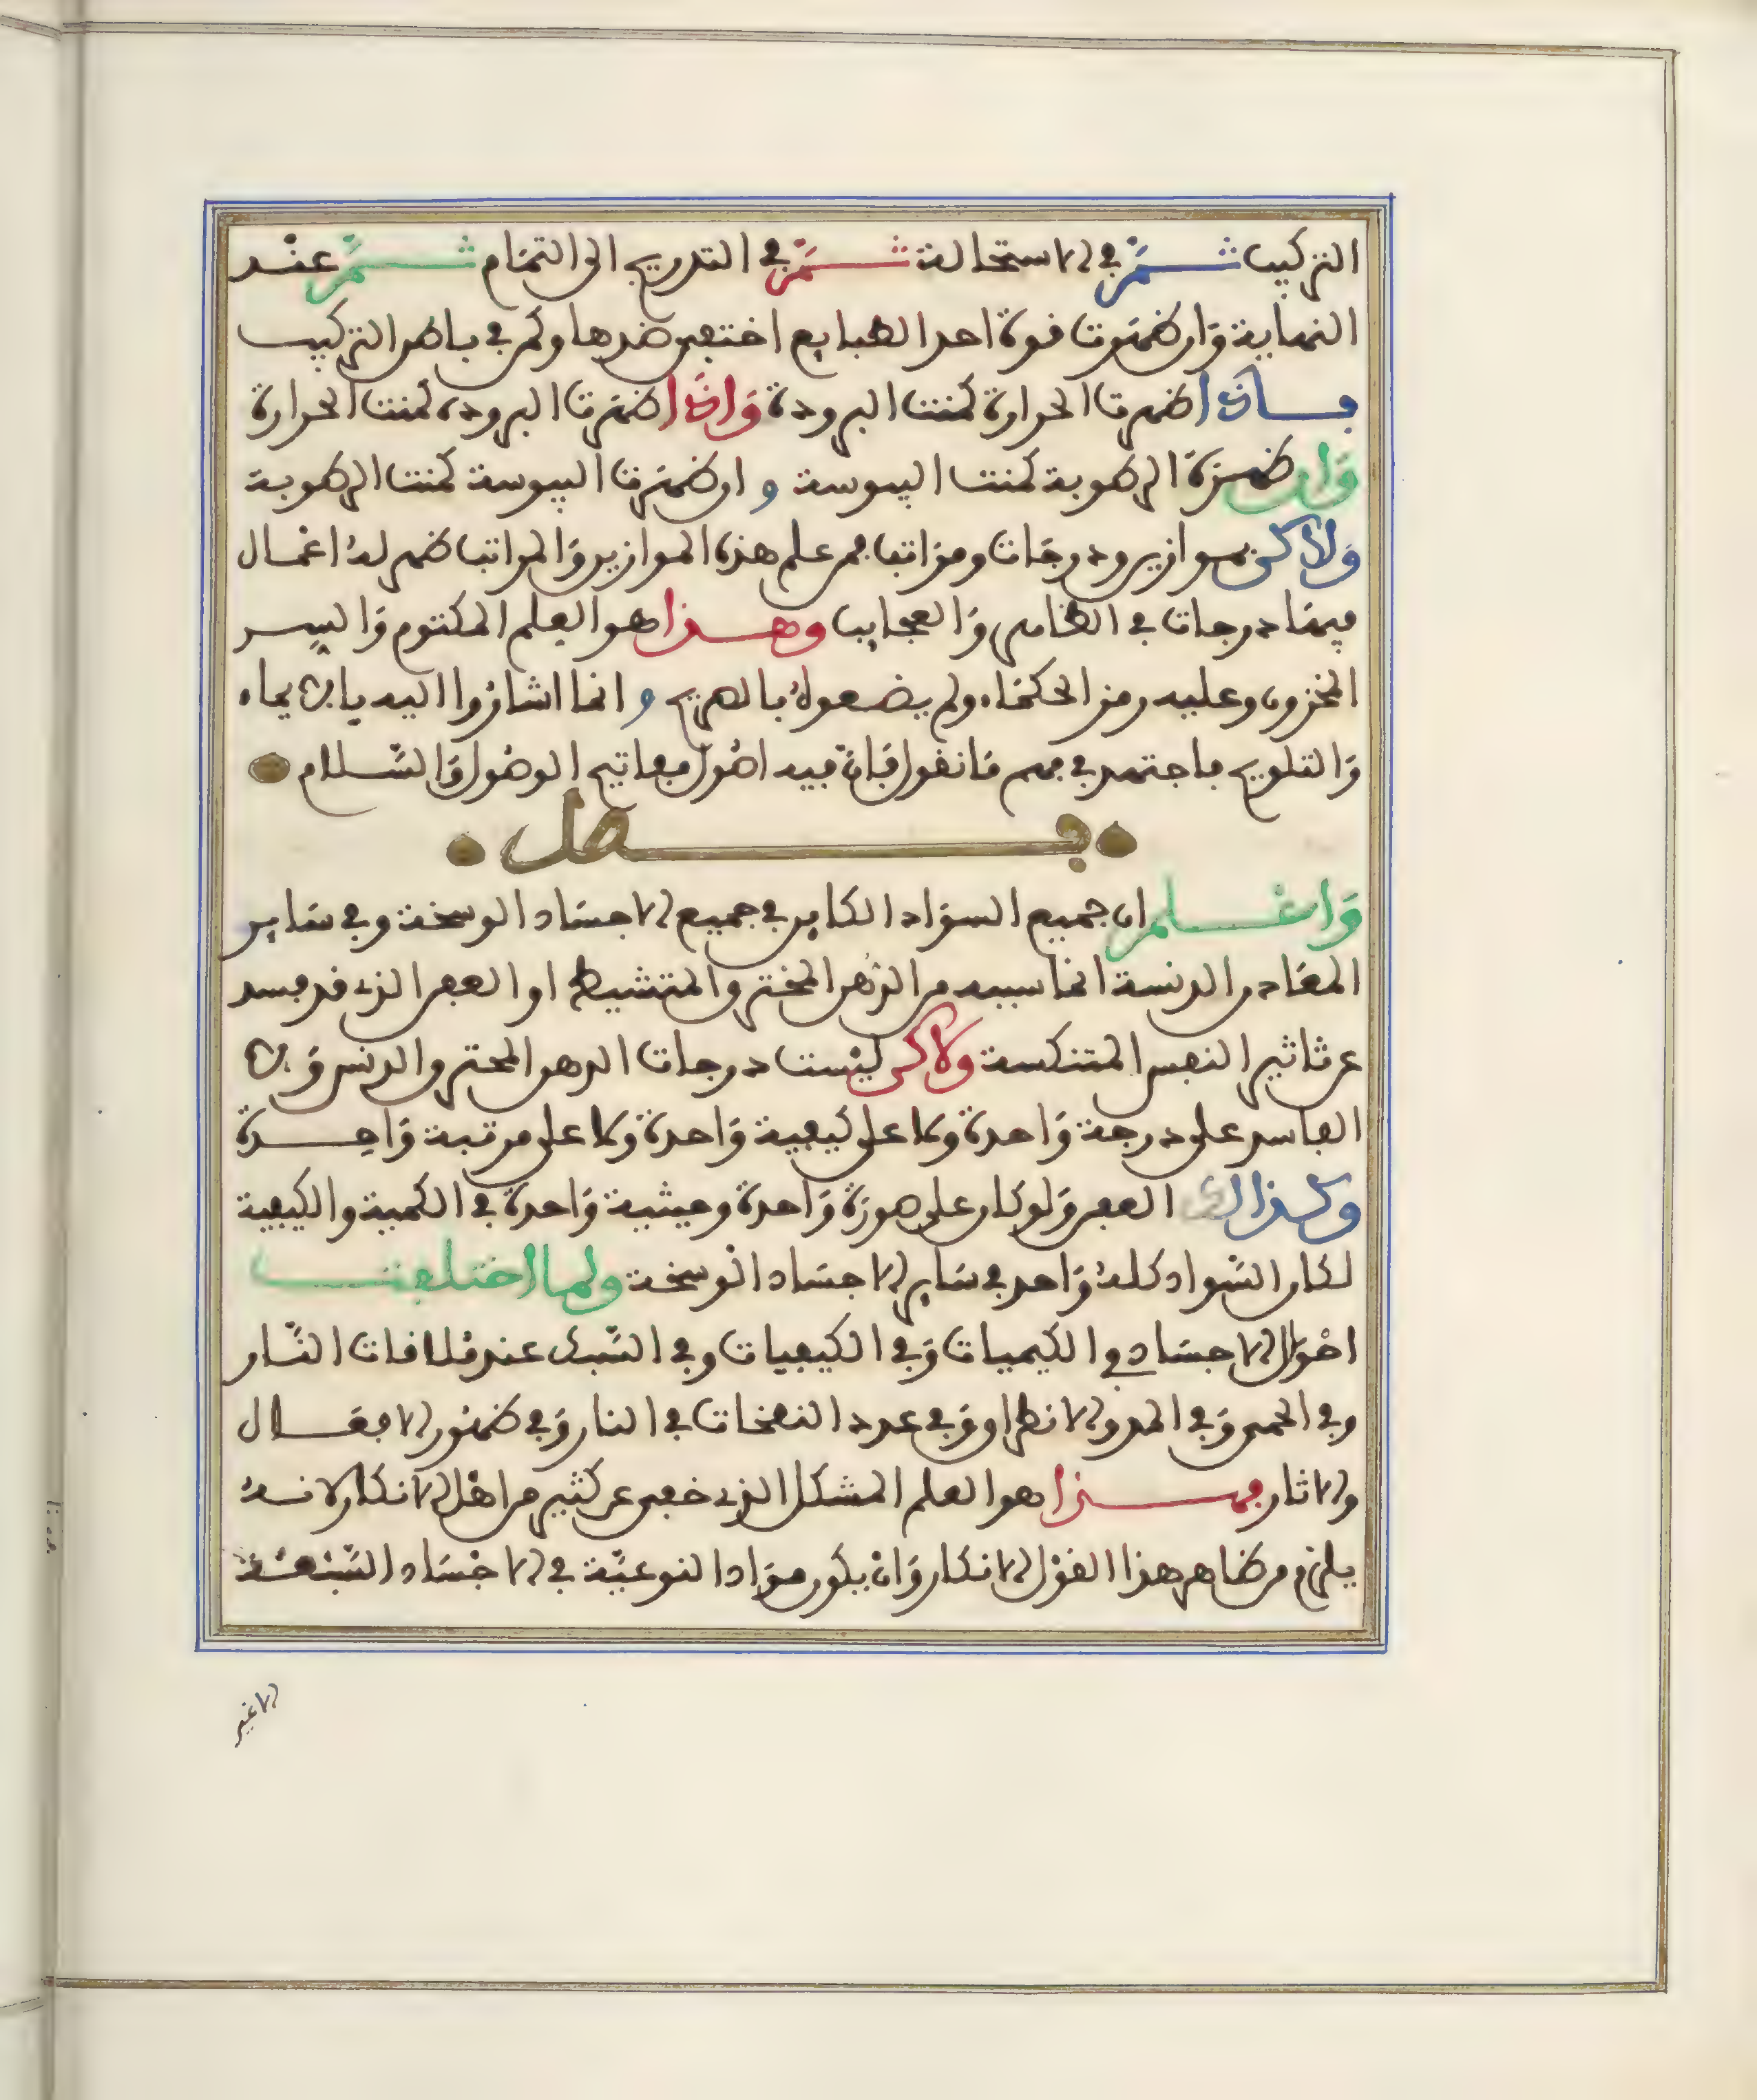 التركيب ثم في الاستحالة ثم في التدريج الى التمام ثم عند
النهاية وان ظهرت قوة احد الطبايع اختفى ضدها وكمن في باطن التركيب
فاذا ظهرت الحرارة كمنت البرودة واذا ظهرت البرودة كمنت الحرارة
وان ظهرة الرطوبة كمنت اليبوسة و ان ظهرت اليبوسة كمنت الرطوبة
ولاكن بموازين ودرجات ومراتب فمن علم هذه الموازين والمراتب ظهر له اعمال
فيها درجات في الخامس والعجايب وهذا هو العلم المكتوم والسر
المخزون وعليه رمز الحكماء ولم يضعوه بالصريح و انما اشاروا اليه بالايماء
والتلويح فاجتهد في فهم ما نقول فان فيه اصول مفاتيح الوصول والسلام
فصل
واعلم ان جميع السواد الكاين في جميع الاجساد الوسخة وفي ساير
المعادن الدنسة انما سببه من الدهن المحترق والمتشيط او العفن الذي قد فسد
عن تاثير النفس المتنكسة ولاكن ليست درجات الدهن المحترق والدنس ولا
الفاسد على درجة واحدة ولا على كيفية واحدة ولا على مرتبة واحدة
وكذالك العفن ولو كان على صورة واحدة وحيثية واحدة في الكمية والكيفية
لكان السواد كله واحد في ساير الاجساد الوسخة ولما اختلفت
احوال الاجساد في الكيميات وفي الكيفيات وفي السبك عند ملاقات النار
وفي الحمى وفي المد والانطراق وفي عدد النفخات في النار وفي ظهور الافعال
والاثار فهذا هو العلم المشكل الذي خفي عن كثير من اهل الانكار لانه
يلزم من ظاهر هذا القول الانكار وان يكون مواد النوعية في الاجساد السبعة
الاغير